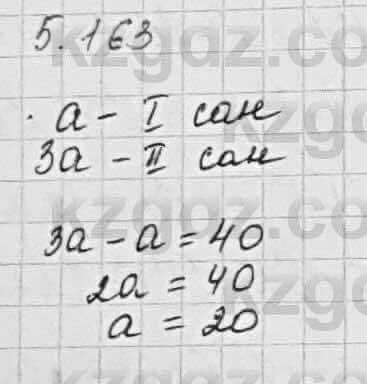 5.163
a - I сан
3a - II сан
3a - a = 40
2a = 40
a = 20